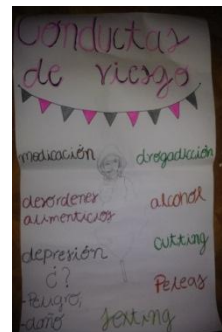 Conductas
de riesgo
medicación
drogadicción
desordenes
alimenticios
alcohol
cutting
depresión
¿?
Peleas
-Peligro,
-daño
Sexting